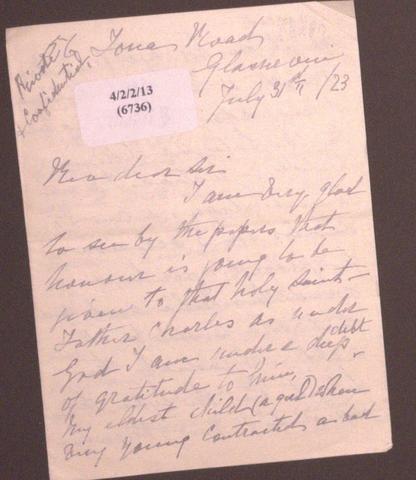 Private &
Confidential
Iona Road
Glasnevin
July 31st /23
4/2/2/13
(6736)
My dear Sir
I am very glad
to see by the papers that
honour is going to be
given to that holy saint -
Father Charles as under
God I am under a deep debt
of gratitude to him,
My eldest child (a girl) when
very young contracted a bad